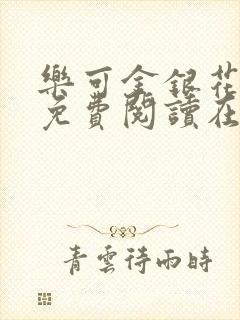 樂可金銀花
免費閱讀在
青雲待雨時